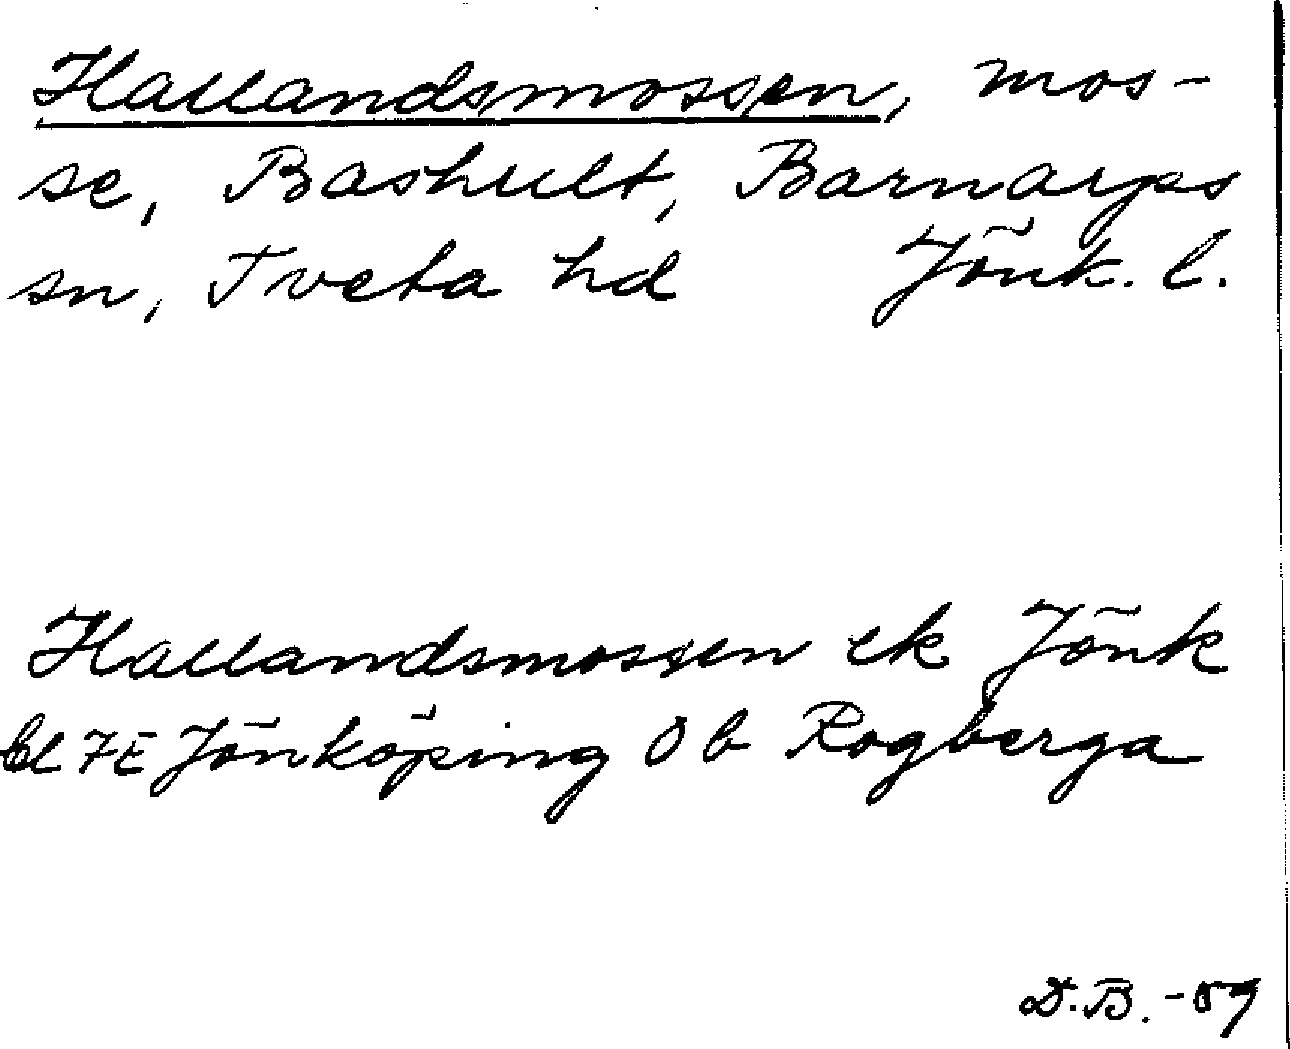 Hallandsmossen, mos-
se, Bashult, Barnarps
sn, Tveta hd Jönk. l.
Hallandsmossen ek Jönk
bl 7E Jönköping 0 b Rogberga
D.B. -59